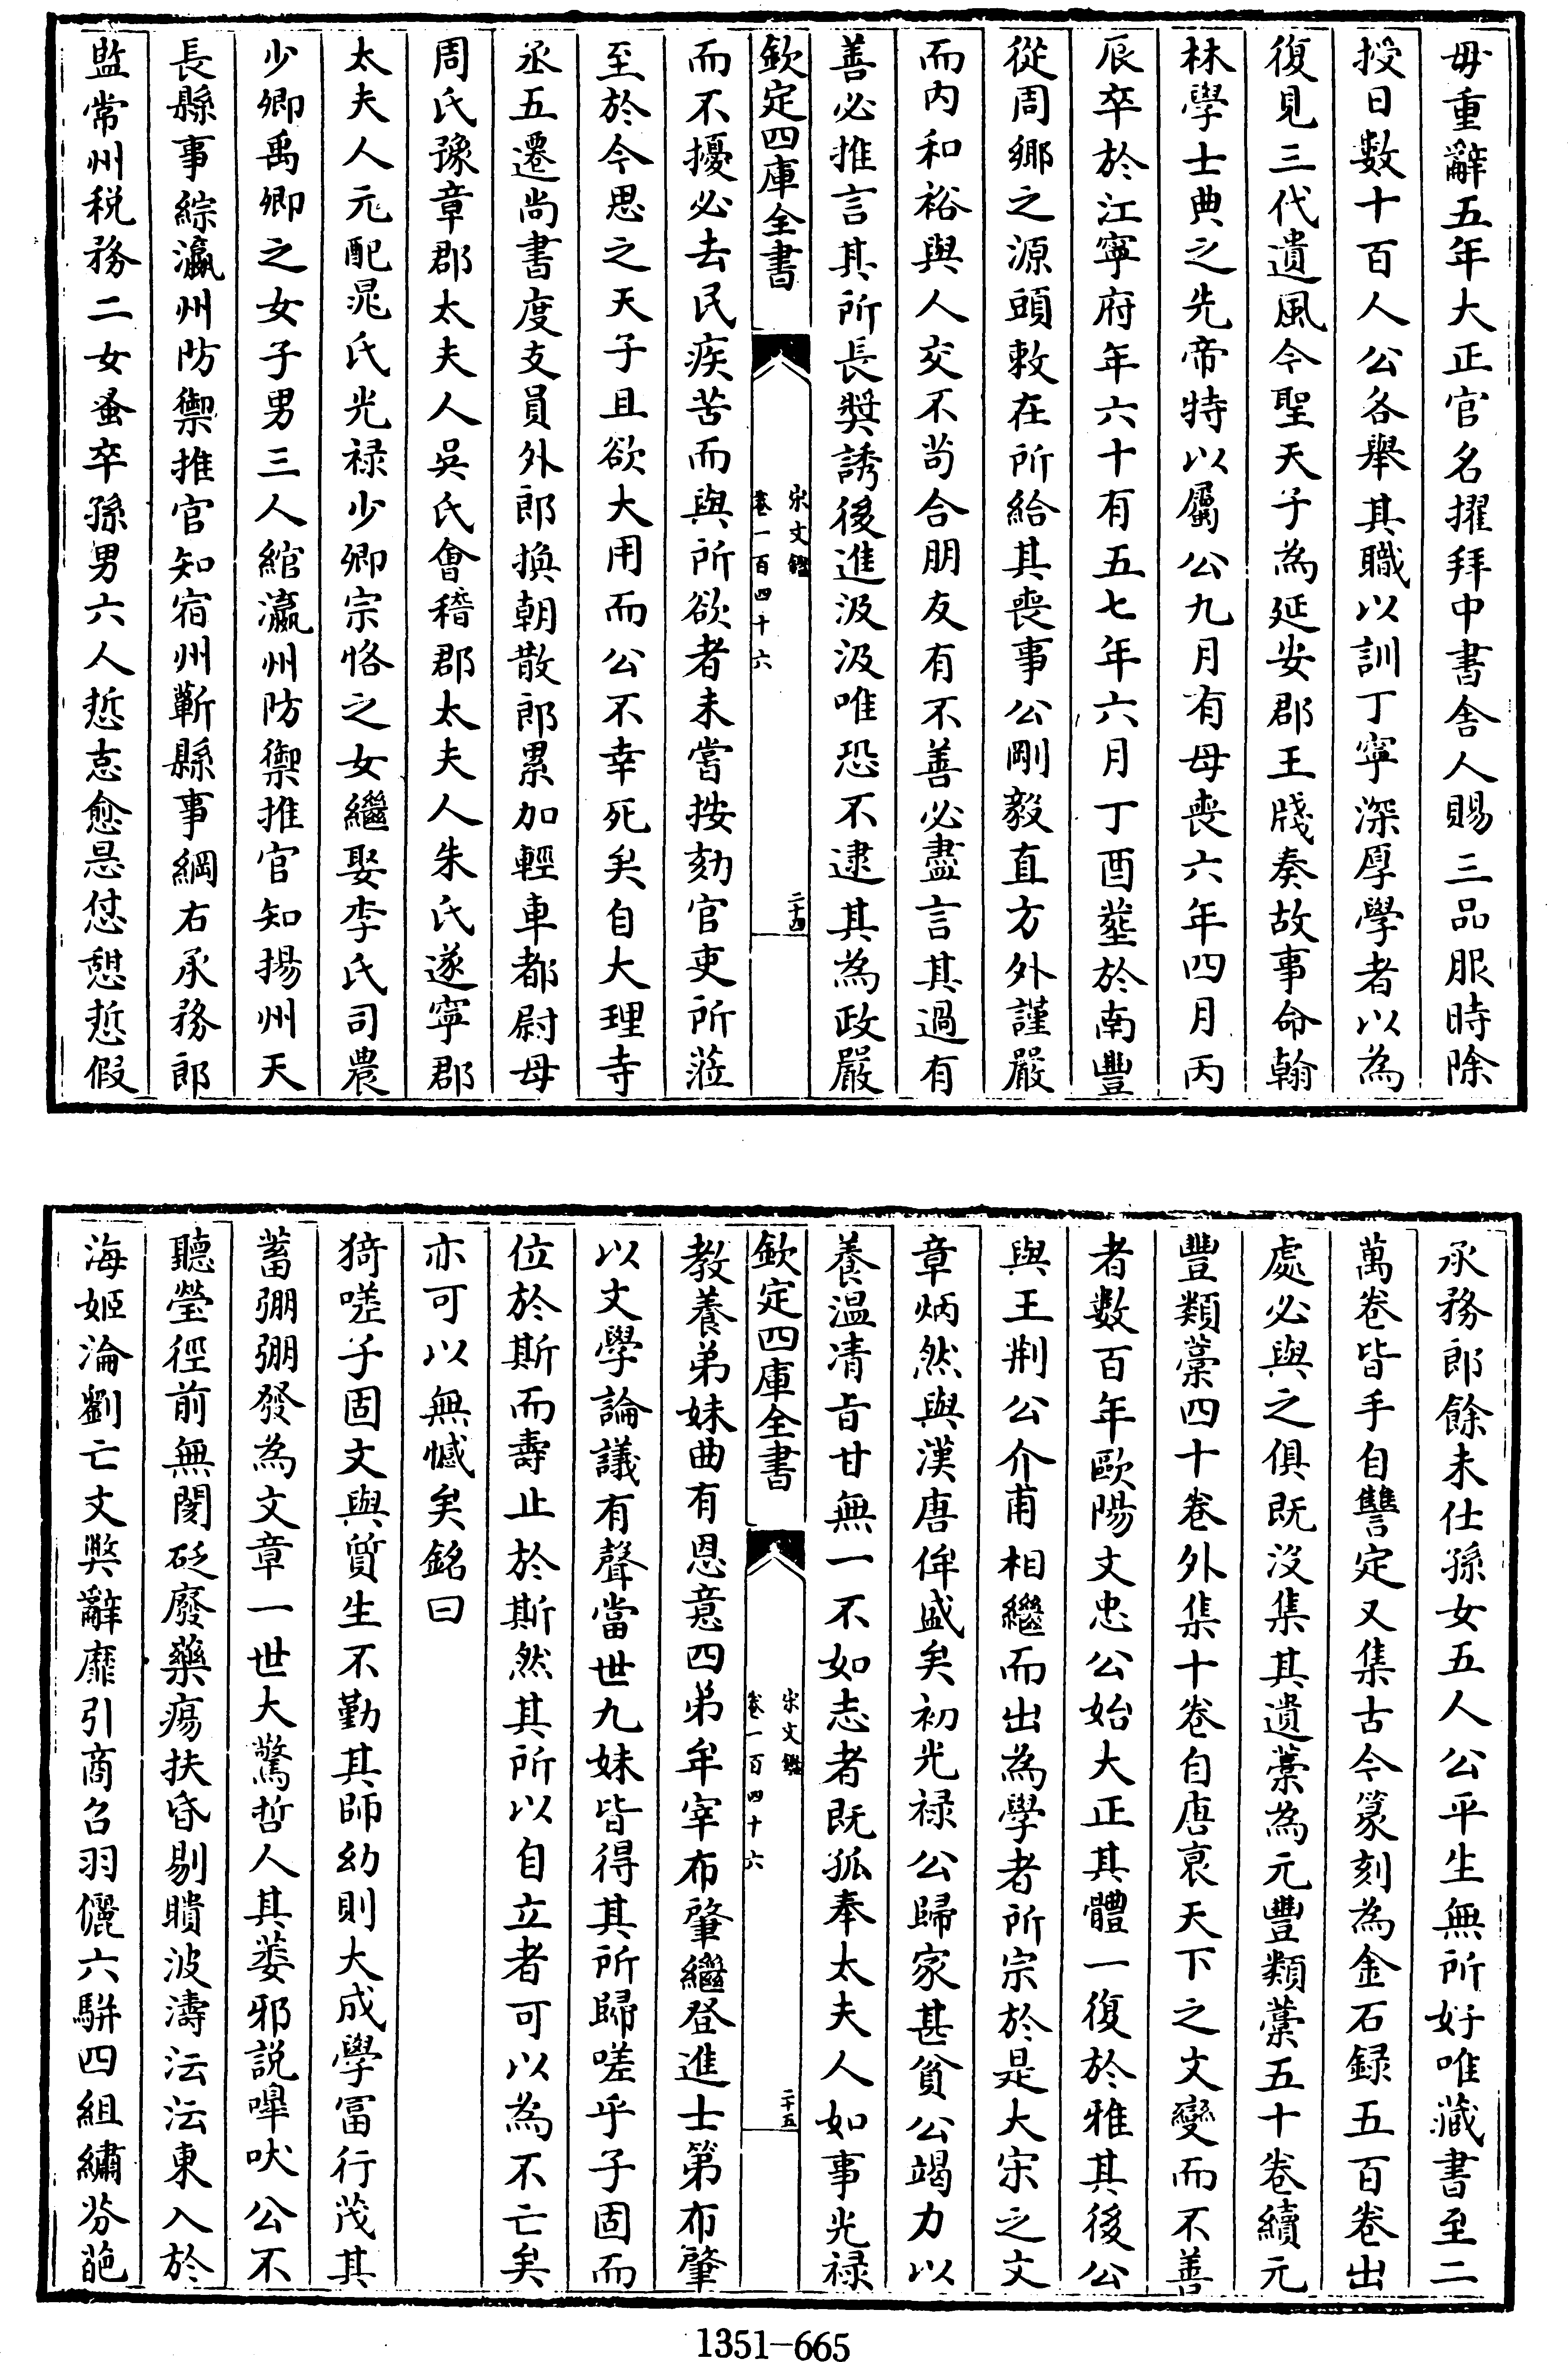 毋重辭五年大正官名擢拜中書舍人賜三品服時除
授日數十百人公各舉其職以訓丁寧深厚學者以為
復見三代遺風今聖天子為延安郡王牋奏故事命翰
林學士典之先帝特以屬公九月有母喪六年四月丙
辰卒於江寧府年六十有五七年六月丁酉葬於南豐
從周鄉之源頭敕在所給其喪事公剛毅直方外謹嚴
而内和裕與人交不苟合朋友有不善必盡言其過有
善必推言其所長奬誘後進汲汲唯恐不逮其為政嚴
欽定四庫全書
宋文鑑
卷一百四十六
二十四
而不擾必去民疾苦而與所欲者未嘗按劾官吏所蒞
至於今思之天子且欲大用而公不幸死矣自大理寺
丞五遷尚書度支員外郎換朝散郎累加輕車都尉母
周氏豫章郡太夫人吳氏會稽郡太夫人朱氏遂寧郡
太夫人元配晁氏光禄少卿宗恪之女繼娶李氏司農
少卿禹卿之女子男三人綰瀛州防禦推官知揚州天
長縣事綜瀛州防禦推官知宿州蘄縣事綱右承務郎
監常州税務二女蚤卒孫男六人悊志愈悬愆憇悊假
承務郎餘未仕孫女五人公平生無所好唯藏書至二
萬卷皆手自讐定又集古今篆刻為金石録五百卷出
處必與之俱既沒集其遺藁為元豐類藁五十卷續元
豐類藁四十卷外集十卷自唐衰天下之文變而不善
者數百年歐陽文忠公始大正其體一復於雅其後公
與王荆公介甫相繼而出為學者所宗於是大宋之文
章炳然與漢唐侔盛矣初光禄公歸家甚貧公竭力以
養温凊旨甘無一不如志者既孤奉太夫人如事光禄
欽定四庫全書
宋文鑑
卷一百四十六
二十五
教養弟妹曲有恩意四弟牟宰布肇繼登進士第布肇
以文學論議有聲當世九妹皆得其所歸嗟乎子固而
位於斯而壽止於斯然其所以自立者可以為不亡矣
亦可以無憾矣銘曰
猗嗟子固文與質生不勤其師幼則大成學富行茂其
蓄弸弸發為文章一世大驚哲人其萎邪説嘷吠公不
聽瑩徑前無閡砭廢藥瘍扶昏剔瞶波濤沄沄東入於
海姬淪劉亡文弊辭靡引商召羽儷六駢四組繡芬葩
1351-665